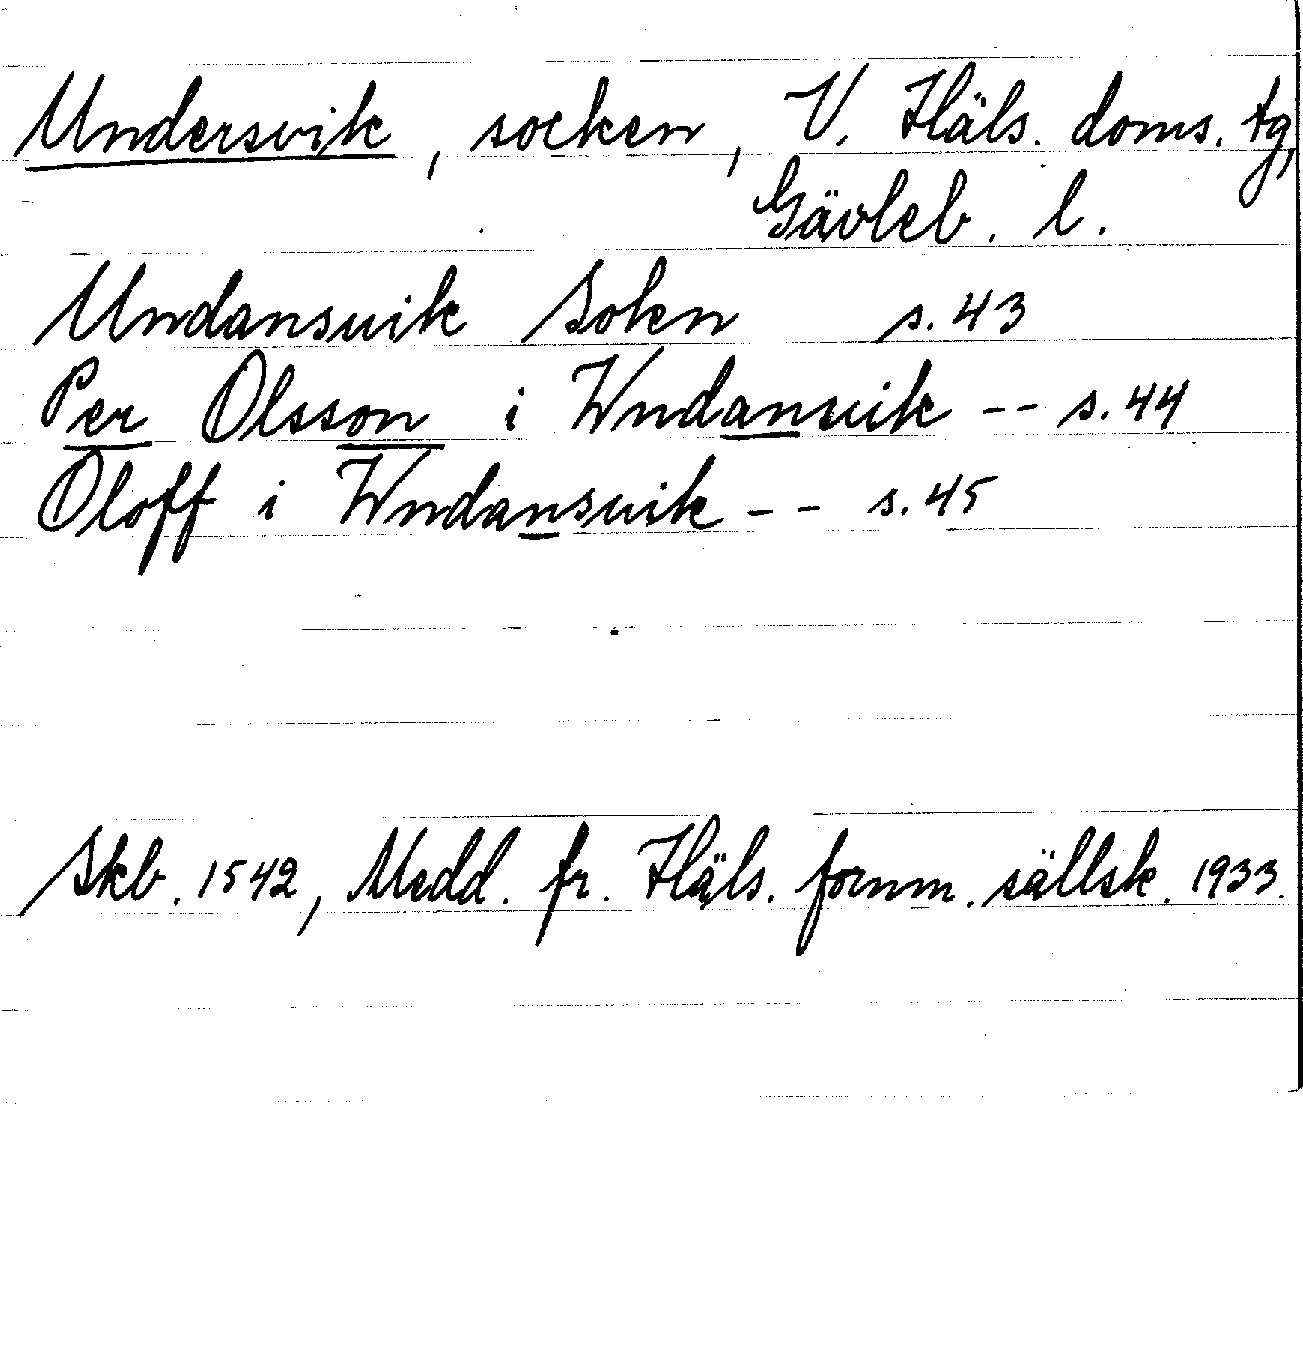 Undersvik, socken, V. Häls. doms. tg,
Gävleb. l.
Undansuik Sokn s. 43
Per Olsson i Wndansuik -- s. 44
Oloff i Wndansuik -- s. 45
Skb. 1542, Medd. fr. Häls. fornm. sällsk. 1933.